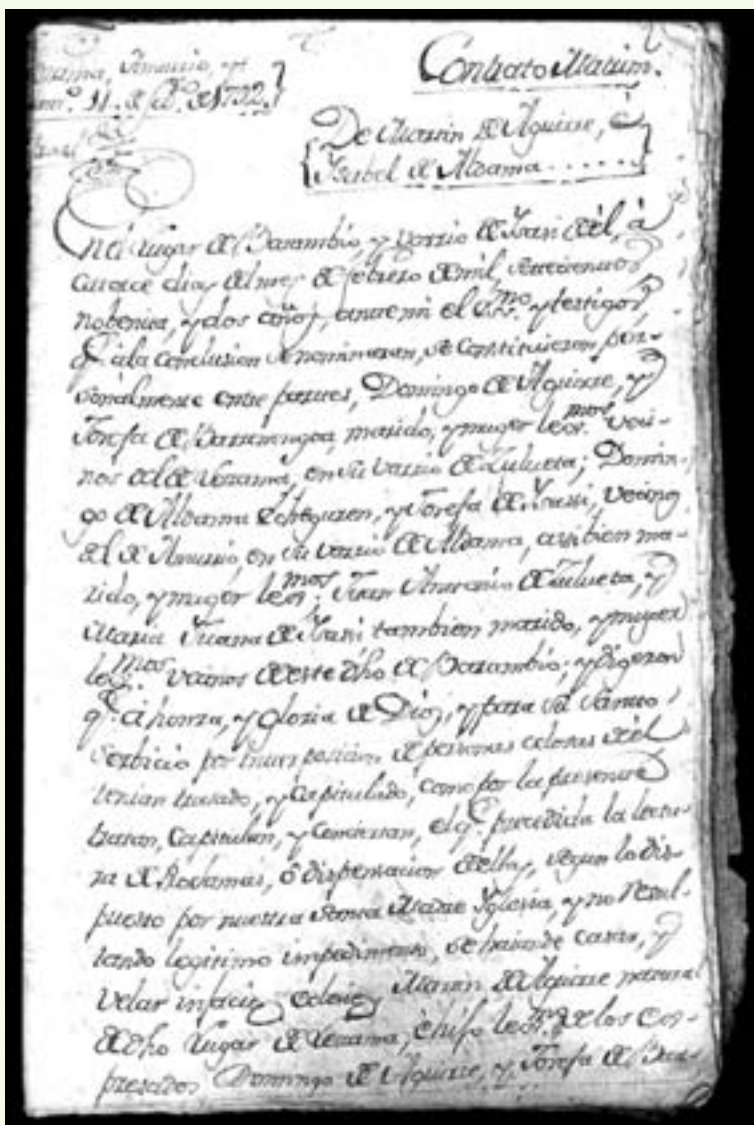 Lezama, Amurrio, y
11. de Feb.º de 1792.
Contrato Matrim.
De Martin de Aguirre, è
Ysabel de Aldama . . . . . .
En el lugar de Barambio, y varrio de Yrasi de èl, à
catorce dias del mes de febrero de mil, setecientos
nobenta, y dos años, ante mi el Ess.no y testigos,
q.e à la conclusion se nominaran, se constituieron per-
sonalmente entre partes, Domingo de Aguirre, y
Josefa de Barrenengoa, marido, y muger lexmos. veci-
nos del de Lezama, en su varrio de Zulueta; Domin-
go de Aldama Echeguren, y Josefa de Yrassi, vecinos
del de Amurrio, en su varrio de Aldama, assibien ma-
rido, y muger lexmos. Juan Antonio de Zulueta, y
Maria Juana de Yrasi tambien marido, y muger
lexmos. vecinos de este dho de Barambio; y digeron
q.e à honra, y gloria de Dios, y para su santo
serbicio por interposicion de personas celosas de èl
tenian tratado, y capitulado, como por la presente
tratan, capitulan, y conciertan, el q.e precedida la lectu-
ra de Proclamas, ò dispensacion de ellas, segun lo dis-
puesto por nuestra Santa Madre Yglesia, y no resul-
tando legitimo impedimento, se haian de casar, y
velar infacie eclesie Martin de Aguirre natural
de dho lugar de Lezama, è hijo lexmo. de los es-
presados Domingo de Aguirre, y Josefa de Bar-